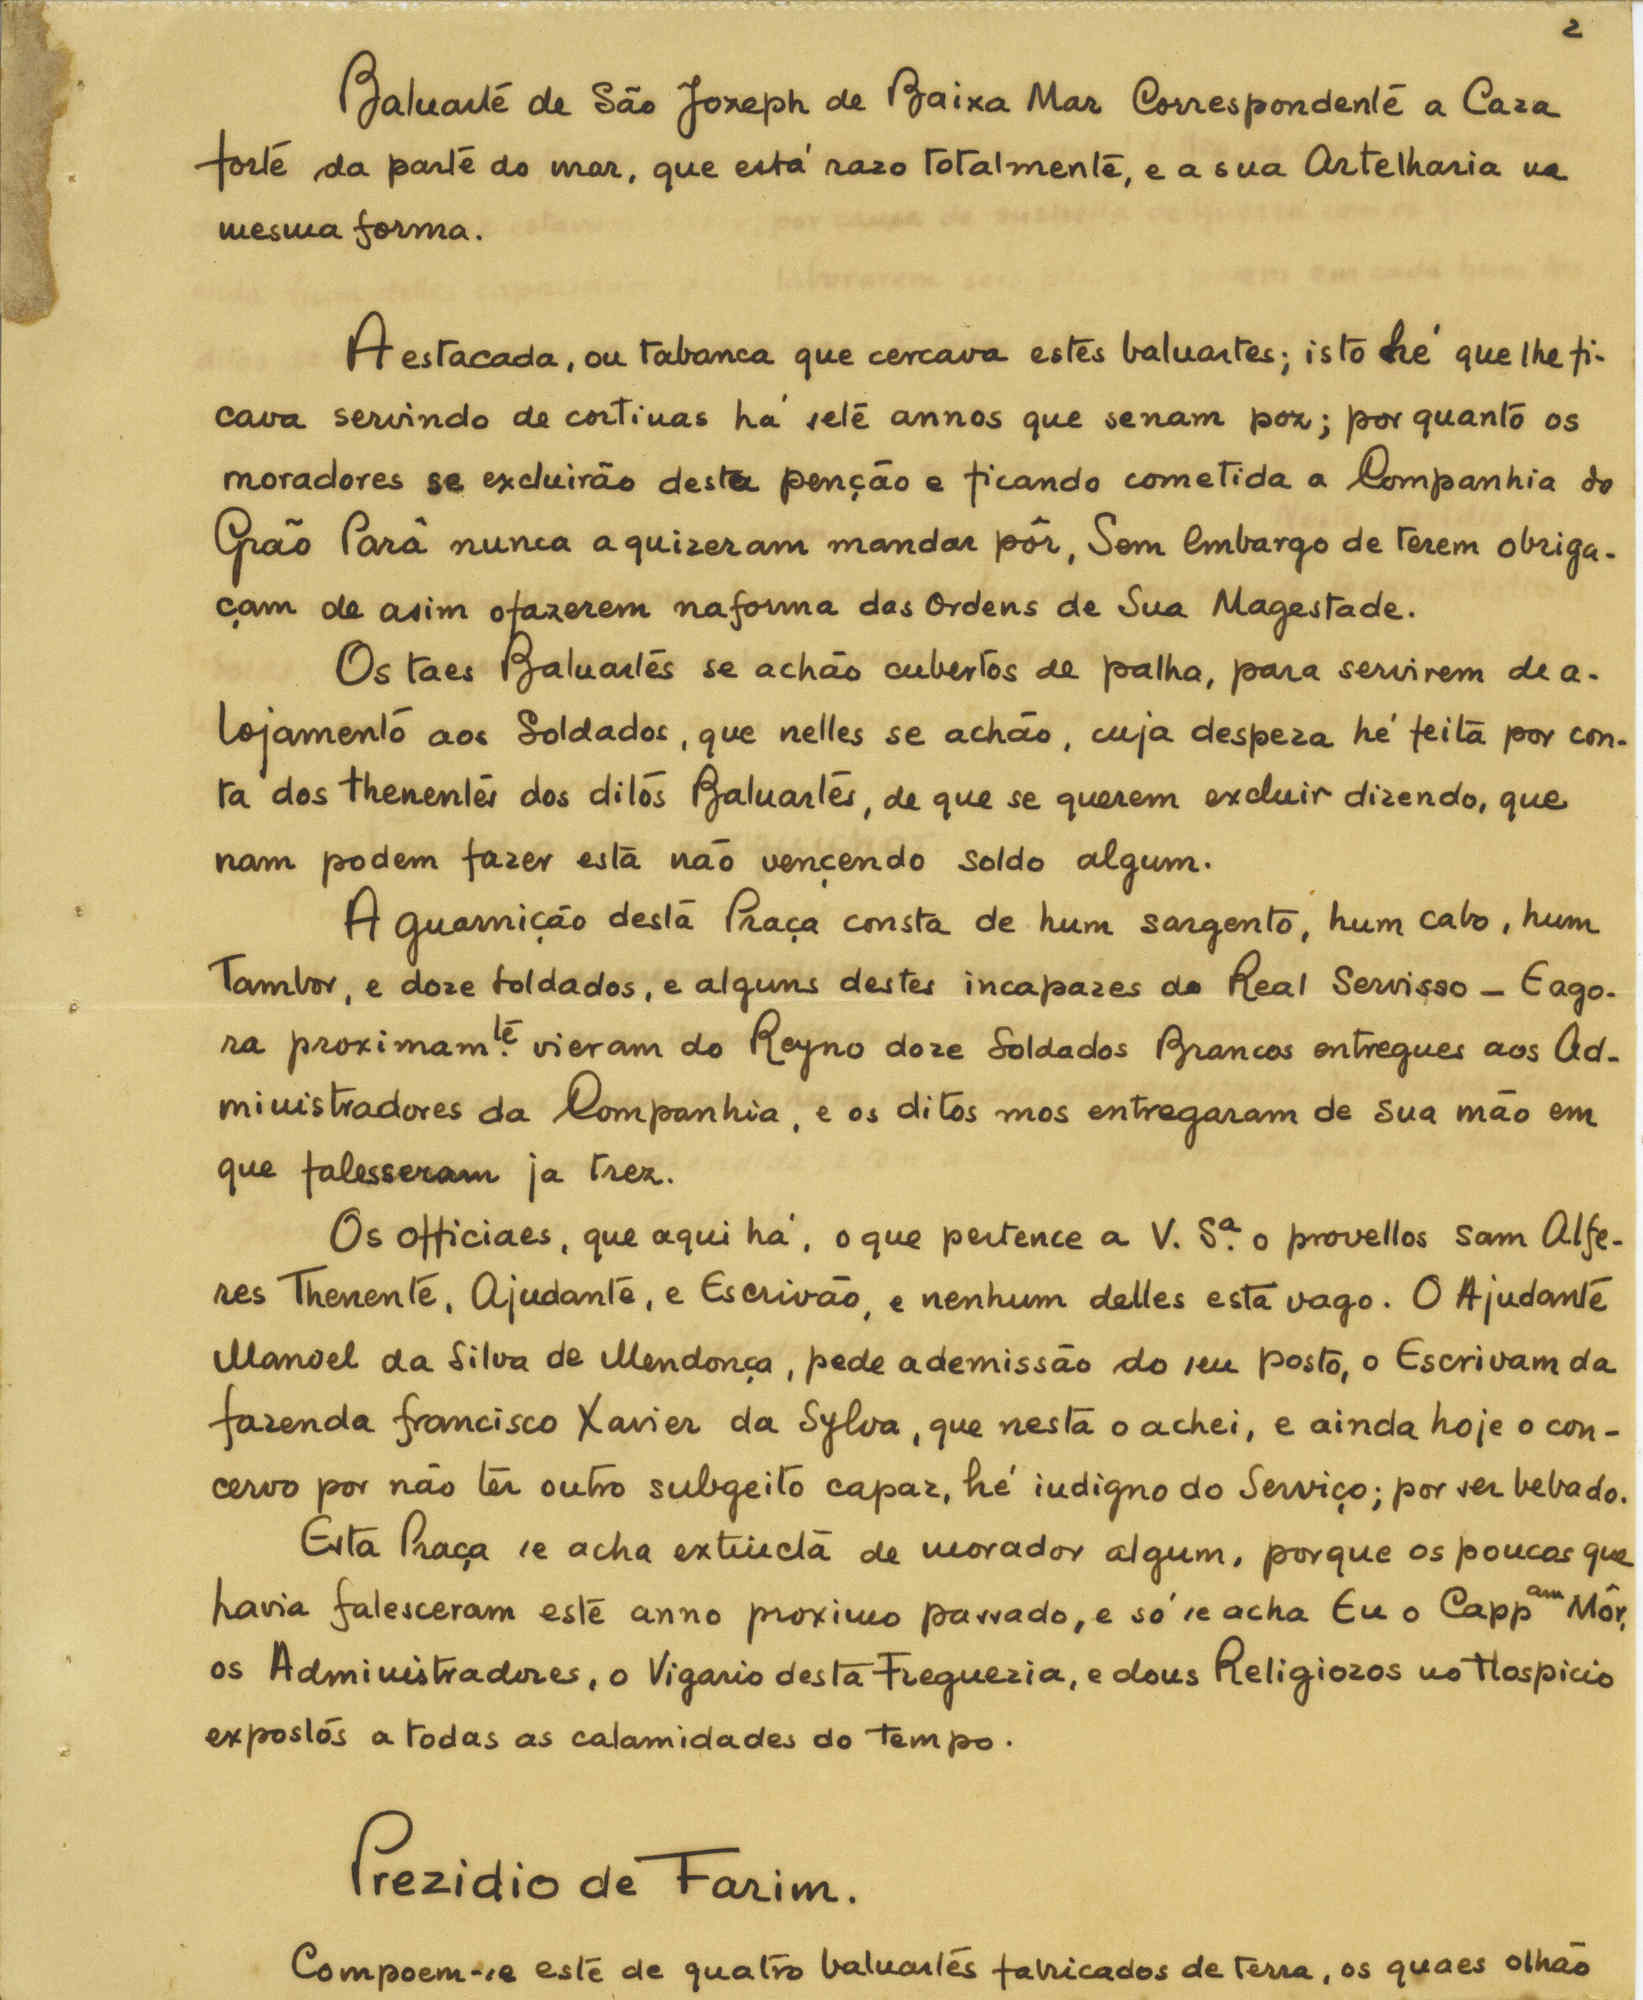 2
Baluarte de São Jozeph de Baixa Mar Correspondente a Caza
forte da parte do mar, que está razo totalmente, e a sua Artelharia na
mesma forma.
A estacada, ou tabanca que cercava estes baluartes; isto hé que lhe fi-
cava servindo de cortinas há sete annos que senam poz; por quanto os
moradores se excluirão desta penção e ficando cometida a Companhia do
Grão Parâ nunca a quizeram mandar pôr, Sem embargo de terem obriga-
çam de asim ofazerem naforma das Ordens de Sua Magestade.
Os taes Baluartes se achão cubertos de palha, para servirem de a-
lojamento aos Soldados, que nelles se achão, cuja despeza hé feita por con-
ta dos thenentes dos ditos Baluartes, de que se querem excluir dizendo, que
nam podem fazer esta não vençendo soldo algum.
A guarnição desta Praça consta de hum sargento, hum cabo, hum
Tambor, e doze soldados, e alguns destes incapazes do Real Servisso - E ago-
ra proximamte. vieram do Reyno doze Soldados Brancos entregues aos Ad-
ministradores da Companhia, e os ditos mos entregaram de sua mão em
que falesseram ja trez.
Os officiaes, que aqui há, o que pertence a V. Sª. o provellos sam Alfe-
res Thenente, Ajudante, e Escrivão, e nenhum delles esta vago. O Ajudante
Manoel da Silva de Mendonça, pede ademissão do seu posto, o Escrivam da
fazenda francisco Xavier da Sylva, que nesta o achei, e ainda hoje o con-
cervo por não ter outro subgeito capaz, hé indigno do Serviço; por ser bebado.
Esta Praça se acha extincta de morador algum, porque os poucos que
havia falesceram este anno proximo passado, e só se acha Eu o Cappam Môr,
os Administradores, o Vigario desta Freguezia, e dous Religiozos no Hospicio
expostos a todas as calamidades do tempo.
Prezidio de Farim.
Compoem-se este de quatro baluartes fabricados de terra, os quaes olhão